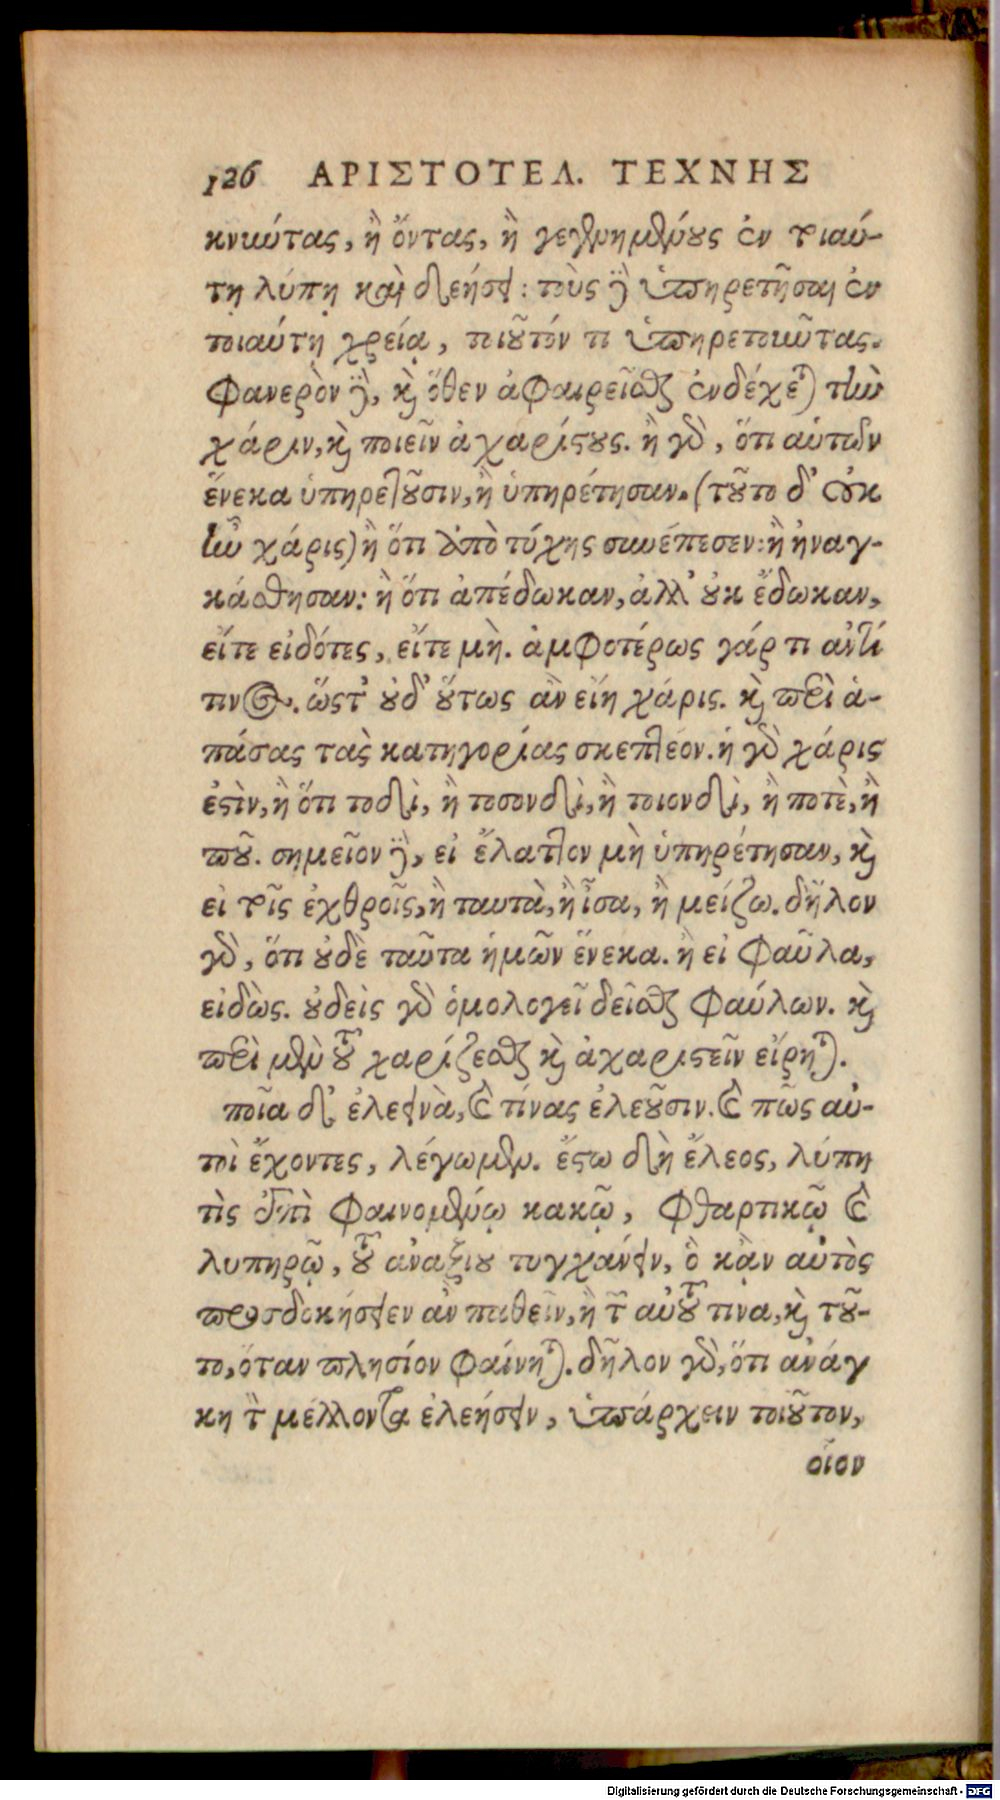 126 ΑΡΙΣΤΟΤΕΛ. ΤΕΧΝΗΣ
κνιώτας, ἢ ὄντας, ἢ γεγενημένους ἐν τοιαύ-
τῃ λύπῃ καὶ δεήσει: τοὺς δὲ ὑπηρετῆσαι ἐν
τοιαύτῃ χρείᾳ, τοιοῦτόν τι ὑπηρετοιῶτας.
Φανερὸν δὲ, καὶ ὅθεν ἀφαιρεῖσθαι ἐνδέχεται τὴν
χάριν, καὶ ποιεῖν ἀχαρίστους. ἢ γὰρ, ὅτι αὑτῶν
ἕνεκα ὑπηρετοῦσιν, ἢ ὑπηρέτησαν. (τοῦτο δ' οὐκ
ἦν χάρις) ἢ ὅτι ἀπὸ τύχης συνέπεσεν: ἢ ἠναγ-
κάσθησαν: ἢ ὅτι ἀπέδωκαν, ἀλλ' οὐκ ἔδωκαν,
εἴτε εἰδότες, εἴτε μὴ. ἀμφοτέρως γάρ τι ἀντί
τινος. ὥστ' οὐδ' οὕτως ἂν εἴη χάρις. καὶ περὶ ἁ-
πάσας τὰς κατηγορίας σκεπτέον. ἡ γὰρ χάρις
ἐστὶν, ἢ ὅτι τοδὶ, ἢ τοσονδὶ, ἢ τοιονδὶ, ἢ ποτὲ, ἢ
ποῦ. σημεῖον δὲ, εἰ ἔλαττον μὴ ὑπηρέτησαν, καὶ
εἰ τοῖς ἐχθροῖς, ἢ ταυτὰ, ἢ ἶσα, ἢ μείζω. δῆλον
γὰρ, ὅτι οὐδὲ ταῦτα ἡμῶν ἕνεκα. ἢ εἰ φαῦλα,
εἰδὼς. οὐδεὶς γὰρ ὁμολογεῖ δεῖσθαι φαύλων. καὶ
περὶ μὲν τοῦ χαρίζεσθαι καὶ ἀχαριστεῖν εἴρηται.
ποῖα δ' ἐλεεινὰ, καὶ τίνας ἐλεοῦσιν. καὶ πῶς αὐ-
τοὶ ἔχοντες, λέγωμεν. ἔστω δὴ ἔλεος, λύπη
τὶς ἐπὶ φαινομένῳ κακῷ, φθαρτικῷ καὶ
λυπηρῷ, τοῦ ἀναξίου τυγχάνειν, ὃ κᾂν αὐτὸς
προσδοκήσειεν ἂν παθεῖν, ἢ τῶν αὐτοῦ τινα, καὶ τοῦ-
το, ὅταν πλησίον φαίνηται. δῆλον γὰρ, ὅτι ἀνάγ
κη τὸν μέλλοντα ἐλεήσειν, ὑπάρχειν τοιοῦτον,
οἷον
Digitalisierung gefördert durch die Deutsche Forschungsgemeinschaft - DFG